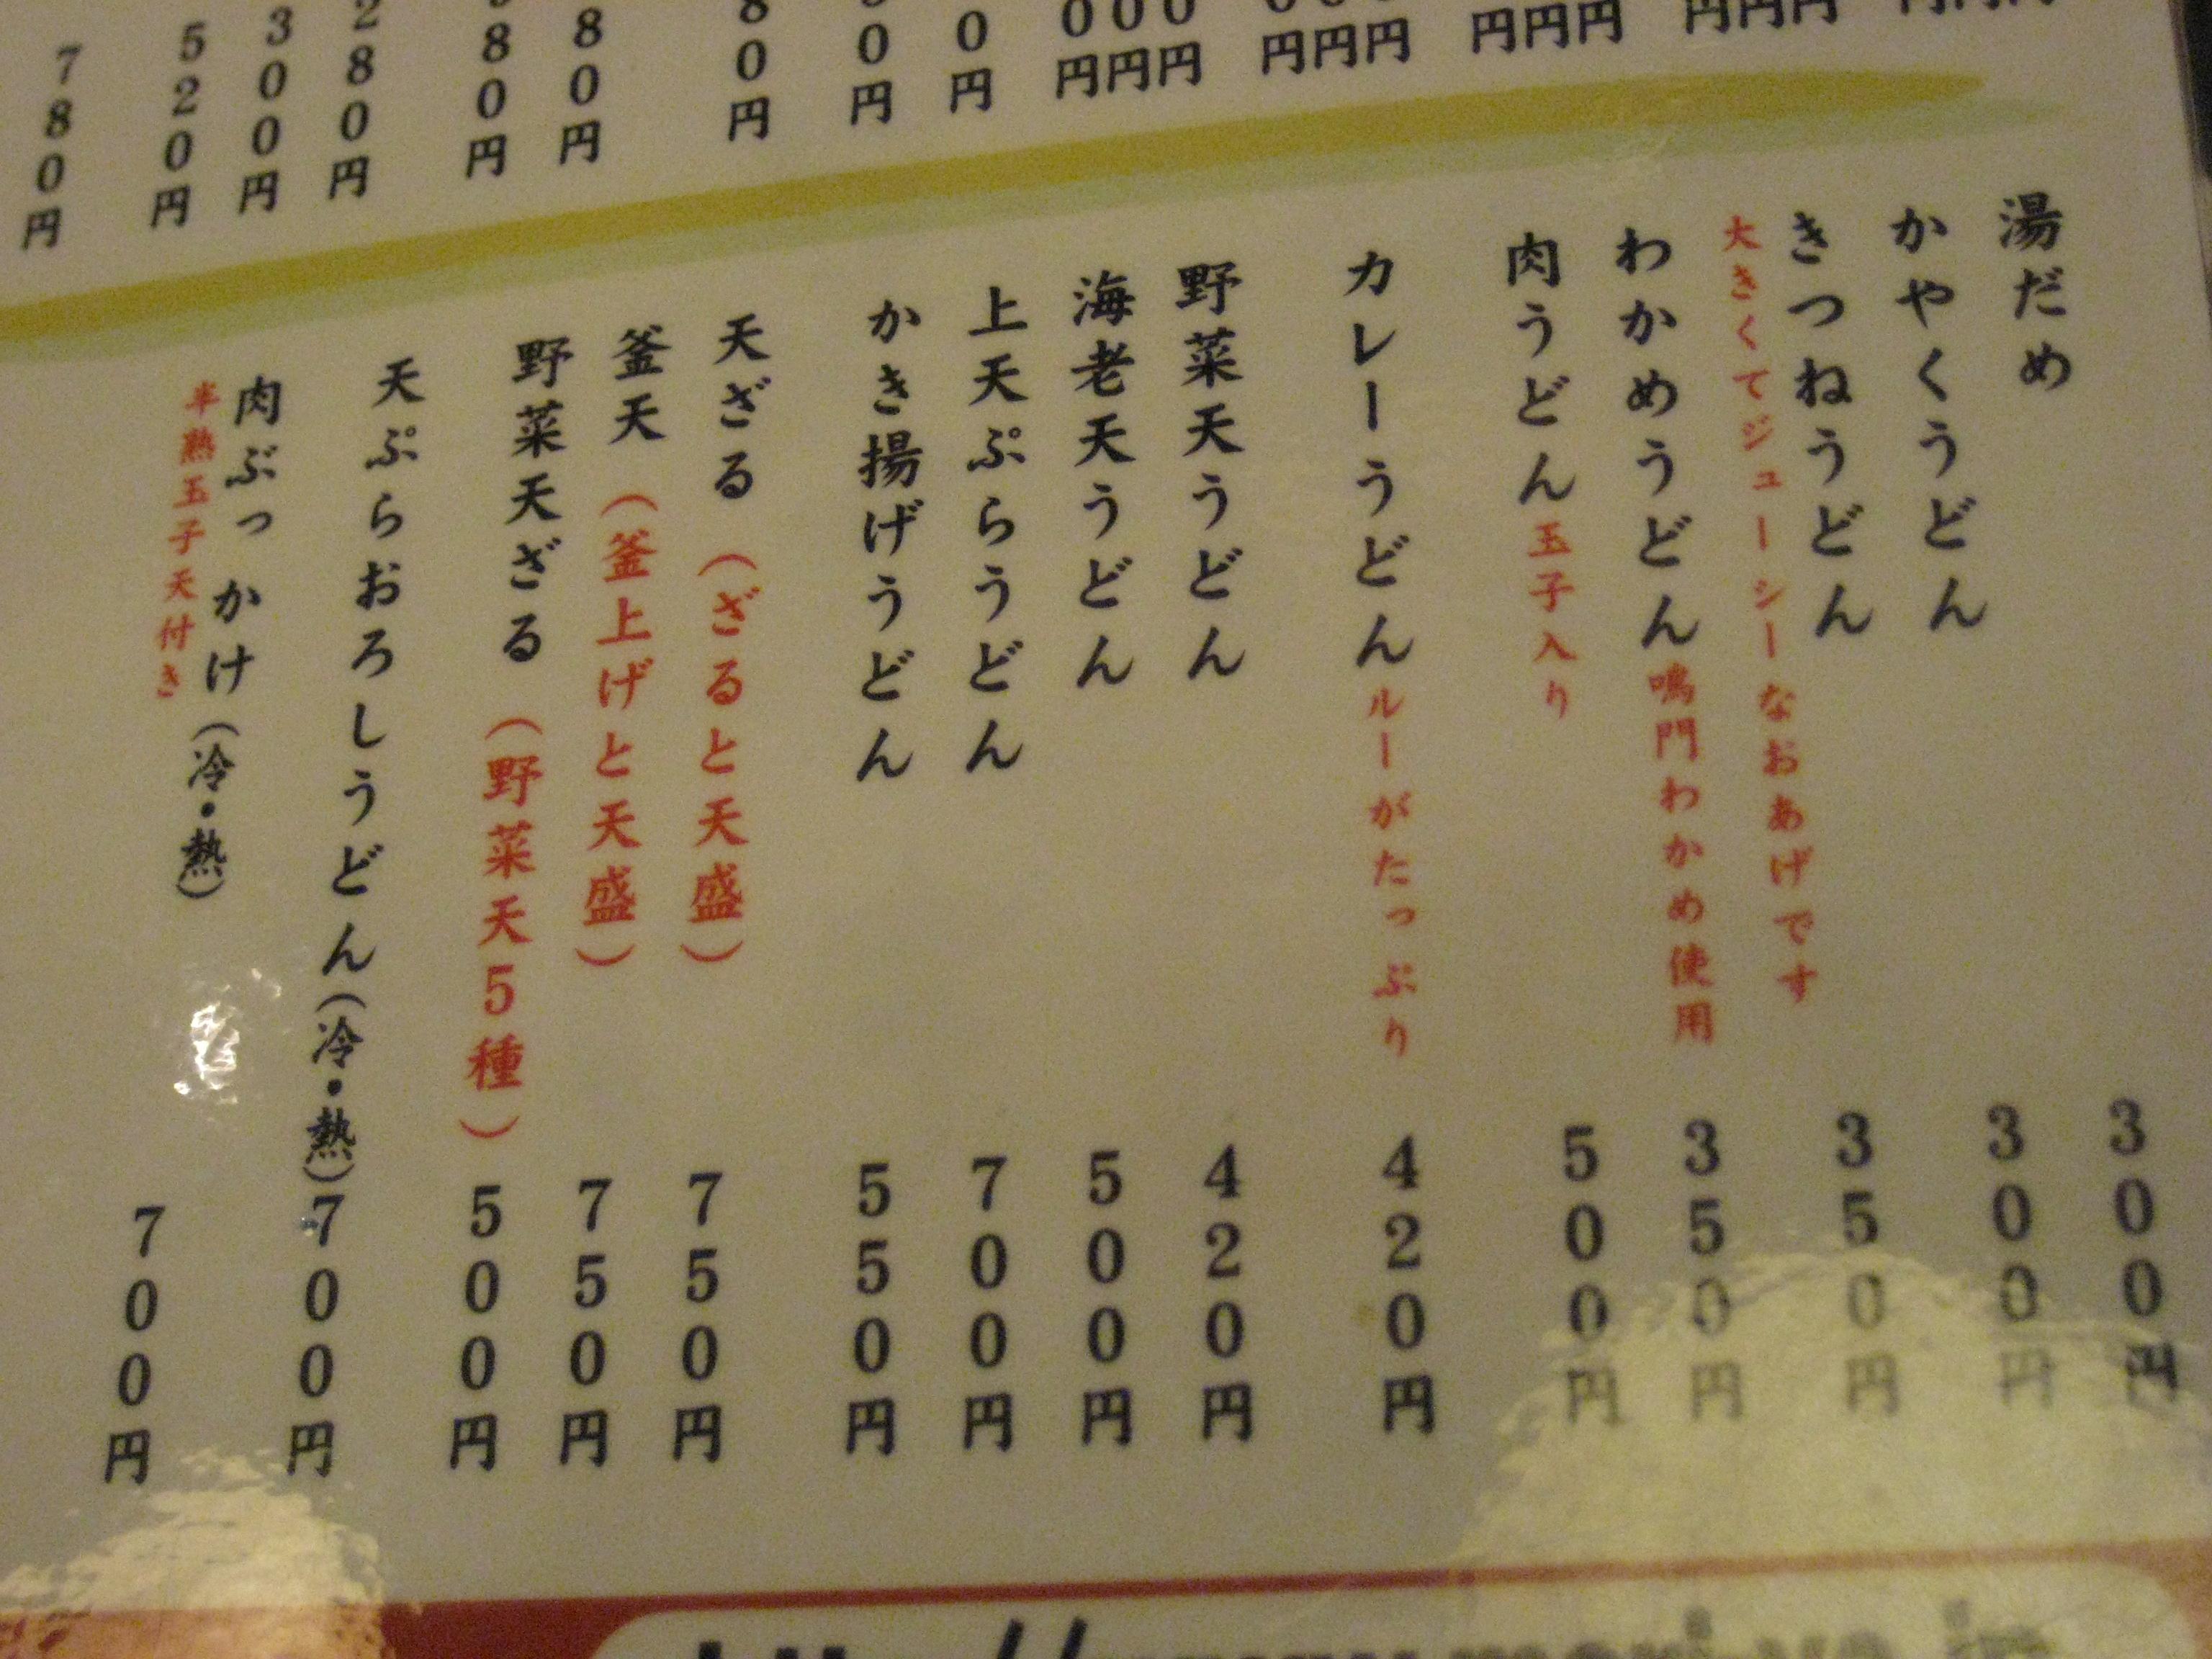 湯だめ 300円
かやくうどん 300円
きつねうどん 350円
大きくてジューシーなおあげです
わかめうどん 鳴門わかめ使用 350円
肉うどん 玉子入り 500円
カレーうどん ルーがたっぷり 420円
野菜天うどん 420円
海老天うどん 500円
上天ぷらうどん 700円
かき揚げうどん 550円
天ざる（ざると天盛） 750円
釜天（釜上げと天盛） 750円
野菜天ざる（野菜天5種） 500円
天ぷらおろしうどん（冷・熱） 700円
肉ぶっかけ（冷・熱） 700円
半熟玉子天付き
80円
80円
300円
520円
780円